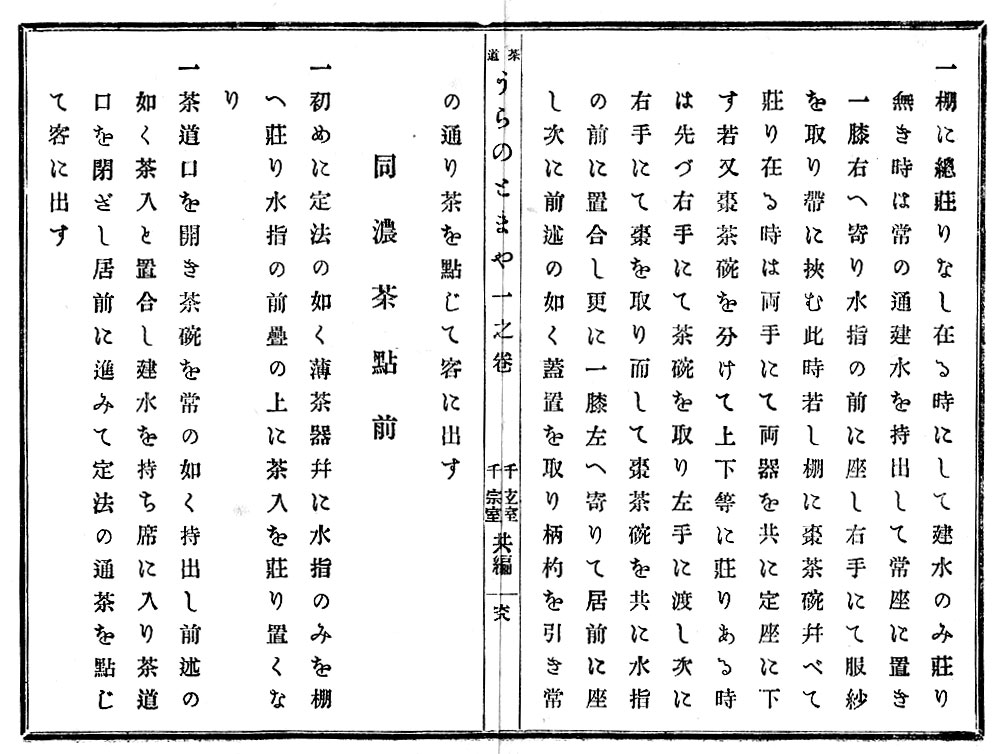 一棚に總莊りなし在る時にして建水のみ莊り
無き時は常の通建水を持出して常座に置き
一膝右へ寄り水指の前に座し右手にて服紗
を取り帶に挾む此時若し棚に棗茶碗幷べて
莊り在る時は両手にて両器を共に定座に下
す若又棗茶碗を分けて上下等に莊りある時
は先づ右手にて茶碗を取り左手に渡し次に
右手にて棗を取り而して棗茶碗を共に水指
の前に置合し更に一膝左へ寄りて居前に座
し次に前述の如く蓋置を取り柄杓を引き常
茶道
うらのとまや一之卷
千玄室
千宗室
共編
六八
の通り茶を點じて客に出す
同濃茶點前
一初めに定法の如く薄茶器幷に水指のみを棚
へ莊り水指の前疊の上に茶入を莊り置くな
り
一茶道口を開き茶碗を常の如く持出し前述の
如く茶入と置合し建水を持ち席に入り茶道
口を閉ざし居前に進みて定法の通茶を點じ
て客に出す